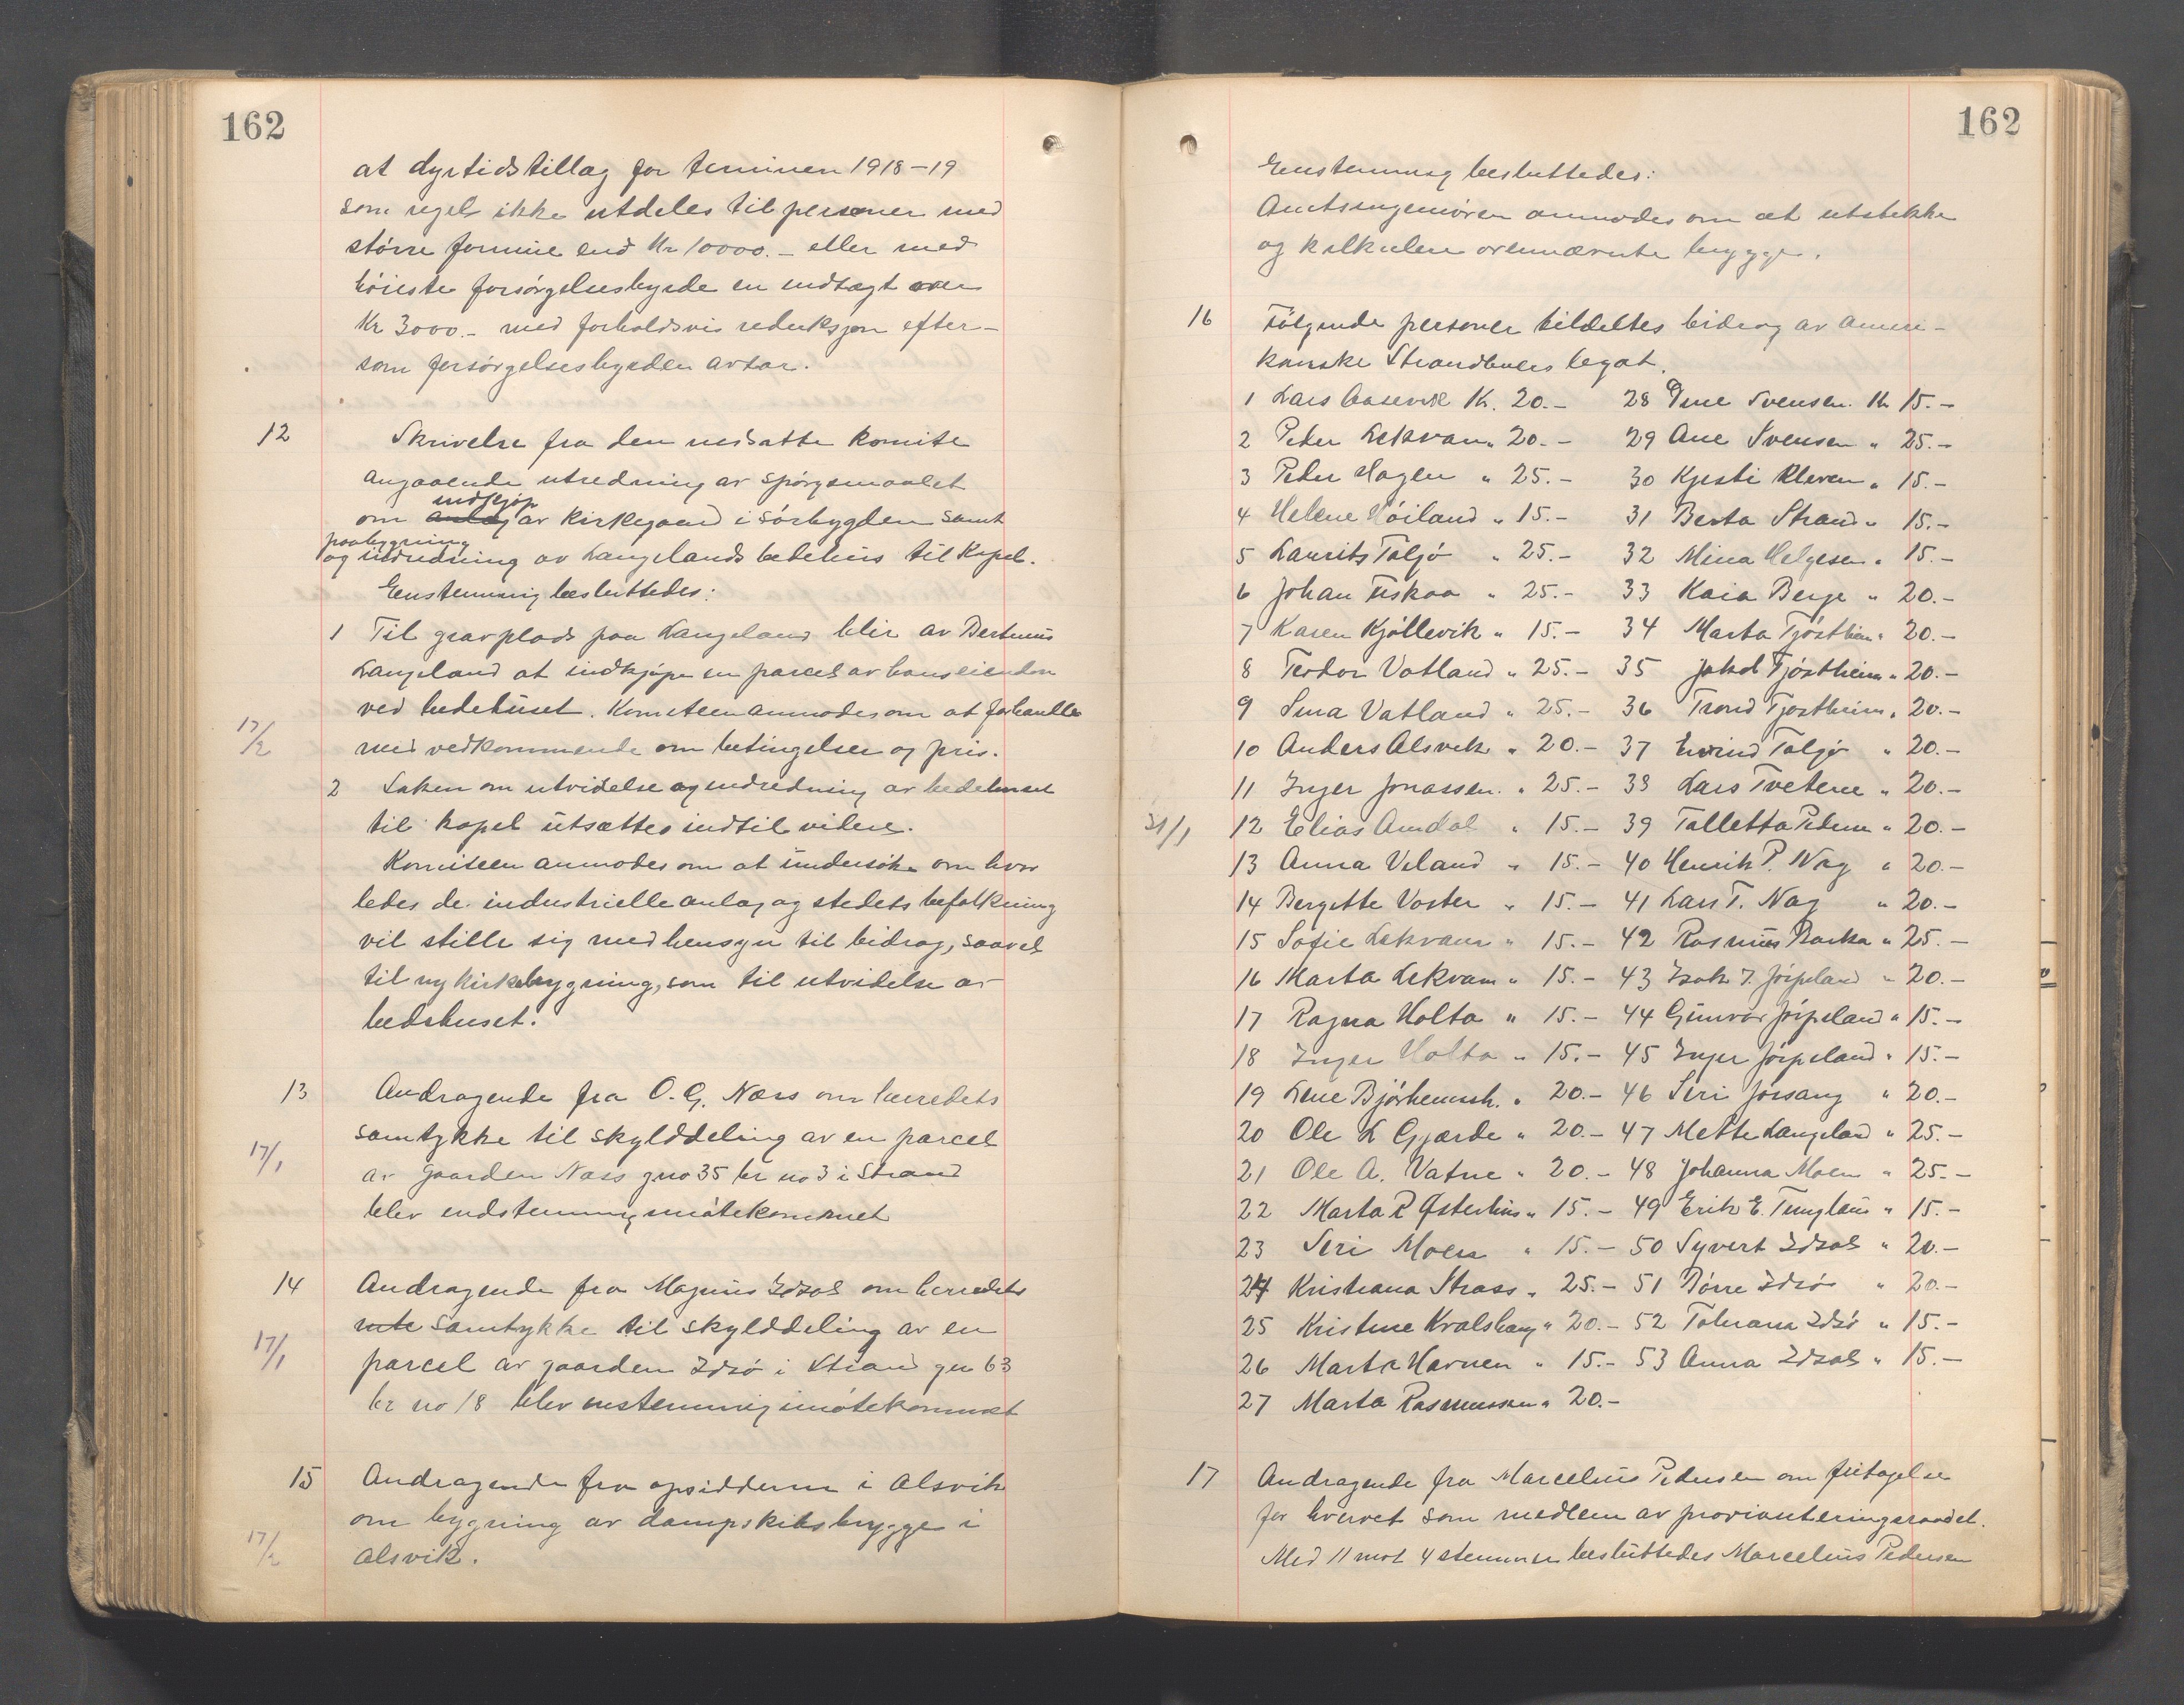 162
at dyrtidstillæg for terminen 1918-19
som regel ikke utdeles til personer med
större formue end Kr 10000.- eller med
höieste forsörgelsesbyrde en indtægt over
Kr 3000.- med forholdsvis reduksjon efter-
som forsörgelsesbyrden avtar.
12 Skrivelse fra den nedsatte komite
angaaende utredning av spörgsmaalet
indkjöp
om anlæg av kirkegaard i sörbygden samt
paabygning
og indredning av Langelands bedehus til Kapel.
Enstemmig besluttedes:
1 Til gravplads paa Langeland blir av Bertinius
Langeland at indkjöpe en parcel av hans eiendom
ved bedehuset. Komiteen anmodes om at forhandle
17/2 med vedkommende om betingelser og pris.
2 Saken om utvidelse og indredning av bedehuset
til kapel utsættes indtil videre.
Komiteen anmodes om at undersöke om hvor
ledes de industrielle anlæg og stedets befolkning
vil stille sig med hensyn til bidrag, saavel
til ny kirkebygning, som til utvidelse av
bedehuset.
13 Andragende fra O. G. Næss om herredets
samtykke til skylddeling av en parcel
17/1 av gaarden Næss gno 35 br no 3 i Strand
blev endstemmig imötekommet
14 Andragende fra Magnus Idsal om herredets
samtykke til skylddeling av en
17/1 parcel av gaarden Idsö i Strand gn 63
br no 18 blev enstemmig imötekommet
15 Andragende fra opsidderne i Alsvik
om bygning av dampskibsbrygge i
17/2 Alsvik.
162
Enstemmig besluttedes:
Amtsingeniören anmodes om at utstikke
og kalkulere ovennævnte brygge.
16 Fölgende personer tildeltes bidrag av ameri-
kanske Strandbues legat.
1 Lars Aasevik Kr. 20.- 28 Gine Svensen Kr 15.-
2 Peder Lekvam " 20.- 29 Ane Svensen " 25.-
3 Peder Hagen " 25.- 30 Kjesti Kleven " 15.-
4 Helene Höiland " 15.- 31 Berta Strand " 15.-
5 Laurits Taljö " 25.- 32 Mina Helgesen " 15.-
6 Johan Fiskaa " 25.- 33 Kaia Berge " 20.-
7 Karen Kjöllevik " 15.- 34 Marta Tjöstheim " 20.-
8 Teodor Vatland " 25.- 35 Jakob Tjöstheim " 20.-
9 Sina Vatland " 25.- 36 Trond Tjöstheim " 20.-
10 Anders Alsvik " 20.- 37 Eivind Taljö " 20.-
11 Inger Jonassen " 25.- 38 Lars Tvetene " 20.-
31/1 12 Elias Amdal " 15.- 39 Talletta Pedersen " 20.-
13 Anna Veland " 15.- 40 Henrik P. Nag " 20.-
14 Bergitte Voster " 15.- 41 Lars T. Nag " 20.-
15 Sofie Lekvam " 15.- 42 Rasmus Barka " 25.-
16 Marta Lekvam " 15.- 43 Isak J. Jörpeland " 20.-
17 Ragna Holta " 15.- 44 Gunvor Jörpeland " 15.-
18 Inger Holta " 15.- 45 Inger Jörpeland " 15.-
19 Lene Björheimsb. " 20.- 46 Siri Jössang " 20.-
20 Ole L Gjærde " 20.- 47 Mette Langeland " 25.-
21 Ole A. Vatne " 20.- 48 Johanna Moen " 25.-
22 Marta R Østerhus " 15.- 49 Erik E. Tungland " 15.-
23 Siri Moen " 15.- 50 Syvert Idsal " 20.-
24 Kristiana Strass " 25.- 51 Börre Idsö " 20.-
25 Kristine Kvalshaug " 20.- 52 Idsö " 15.-
26 Marta Havnen " 15.- 53 Anna Idsal " 15.-
27 Marta Rasmussen " 20.-
17 Andragende fra Marcelius Pedersen om fritagelse
for hvervet som medlem av provianteringsraadet.
Med 11 mot 4 stemmer besluttedes Marcelius Pedersen